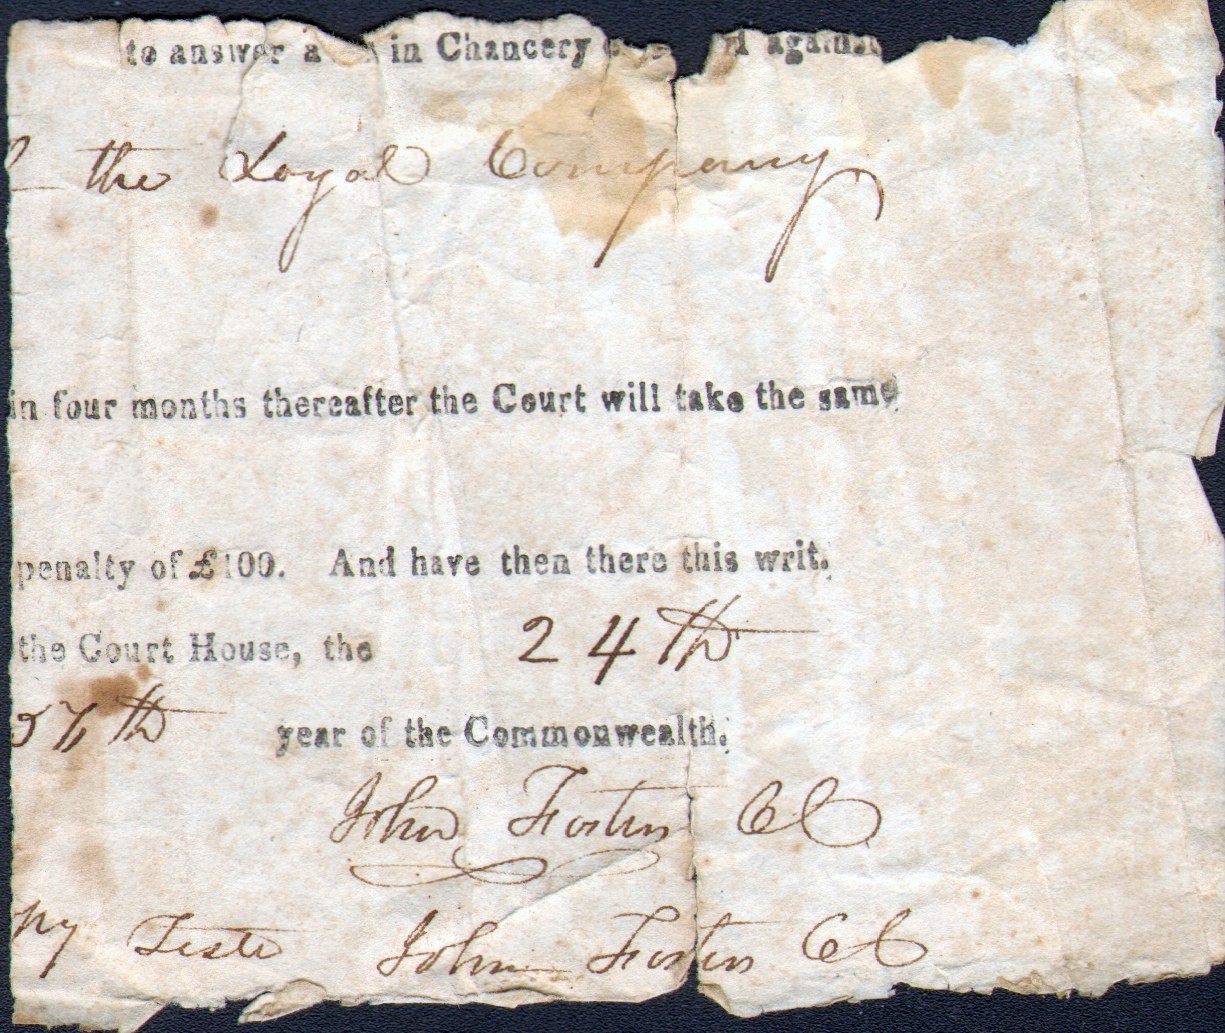 to answer a in Chancery against
the Loyal Company
in four months thereafter the Court will take the same
penalty of £100. And have then there this writ.
the Court House, the 24th
57th year of the Commonwealth.
John Foster Cl
py Teste John Foster Cl